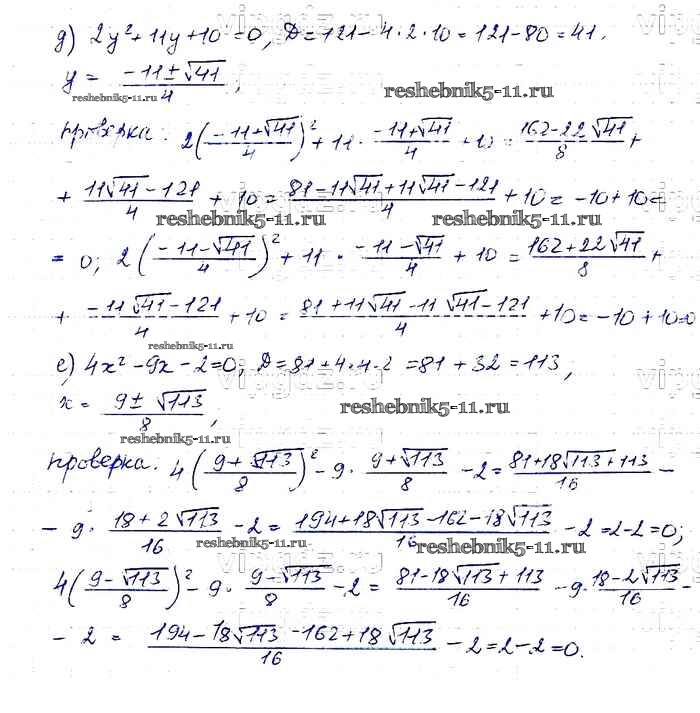 д) 2y² + 11y + 10 = 0, D = 121 - 4·2·10 = 121 - 80 = 41.
y = (-11 ± √41)/4;
reshebnik5-11.ru reshebnik5-11.ru
проверка: 2((-11+√41)/4)² + 11 · (-11+√41)/4 + 10 = (162-22√41)/8 +
+ (11√41 - 121)/4 + 10 = (81 - 11√41 + 11√41 - 121)/4 + 10 = -10 + 10 =
reshebnik5-11.ru reshebnik5-11.ru
= 0; 2((-11-√41)/4)² + 11 · (-11-√41)/4 + 10 = (162+22√41)/8 +
+ (-11√41 - 121)/4 + 10 = (81 + 11√41 - 11√41 - 121)/4 + 10 = -10 + 10 = 0
reshebnik5-11.ru
е) 4x² - 9x - 2 = 0; D = 81 + 4·4·2 = 81 + 32 = 113,
x = (9 ± √113)/8;
reshebnik5-11.ru
reshebnik5-11.ru
проверка: 4((9+√113)/8)² - 9 · (9+√113)/8 - 2 = (81+18√113+113)/16 -
- 9 · (18+2√113)/16 - 2 = (194+18√113-162-18√113)/16 - 2 = 2-2 = 0;
reshebnik5-11.ru reshebnik5-11.ru
4((9-√113)/8)² - 9 · (9-√113)/8 - 2 = (81-18√113+113)/16 - 9 · (18-2√113)/16 -
- 2 = (194-18√113-162+18√113)/16 - 2 = 2-2 = 0.